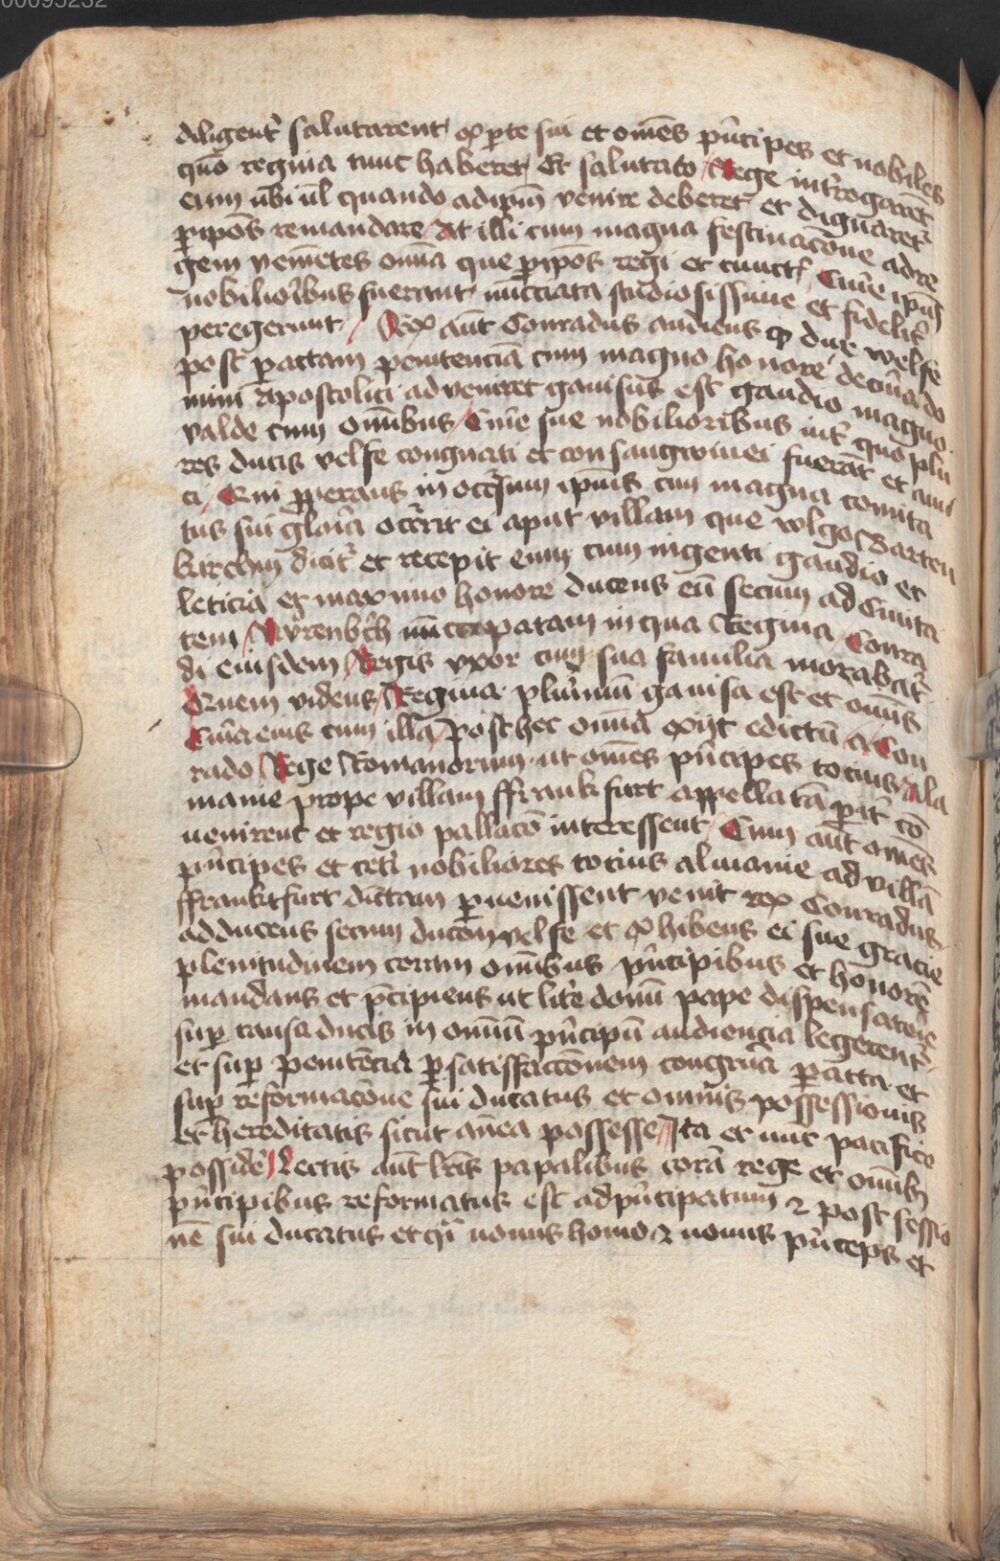 00095232
diligent̉ salutarent ex ꝑte sui et om̄es pⁱncipes et nobiles
quos regina tunc haberet Et salutato Rege int̉rogarēt
eum ubi ul̄ quando ad ip̄m venire deberet et dignaret̉
ꝑ ip̄os remandare At illi cum magna festinac̄one ad re
gem veniētes om̄ia que ꝑ ip̄os regi et cunct̉ Curie ip̄ius
nobilioribus fuerant nūcciata studiosissime et fidelit̉
peregerunt Rex aūt Conradus audiens ꝙ dux welfe
post ꝑactam penitenciā cum magno honore de curia do
mini apostolici adveniret gauisus est gaudio magno
valde cum om̄ibus Curie sue nobilioribus int̉ quos plu
res ducis velfe congnati et consangwinei fuerāt et ami
ci Qui ꝓperans in occ̉sum ip̄ius cum magna comita
tus sui glor̉ia occ̉rit ei aput villam que volgo Barten
kirchen dicit̉ et recepit eum cum ingenti gaudio et
leticia et maximo honore ducens eū secum ad Ciuita
tem Nŭrenb̉ch nūccupatam in qua Regina Conra
di eiusdem Regis vxor cum sua familia morabat̉
Quem videns Regina plurimū gauisa est et om̄is
Curia eius cum illa Post hec om̄ia exijt edictū a Con
rado Rege Romanorum ut om̄es pⁱncipes tocius Ala
manie prope villam ffrankfurt appellatā ꝑit̉ cō
uenirent et regio pallacio interessent Cum aūt om̄es
pⁱncipes et cet̉i nobiliores tocius almanie ad villā
ffrankfurt dictam ꝑuenissent venit rex Conradus
adducens secum ducem velfe et exhibens ei sue gracie
plenitudinem coram om̄ibus pⁱncipibus et honorē
mandans et p̄cipiens ut lit̉e domī pape dispensatorie
suꝑ causa ducis in om̄iū pⁱncipū audiencia legerent̉
et suꝑ penitēcia ꝑ satisfacc̄onem congruā ꝑacta et
suꝑ reformac̄one sui ducatus et omnis possessionis
et hereditatis sicut an̄ea possesse Ita et nūc pacifice
possidē Lectis aūt lr̄is papalibus corā rege et om̄ib3
pⁱncipibus reformatus est ad pⁱncipatum ⁊ possessio
nē sui ducatus et qⁱ nouus homo ⁊ nouus pⁱnceps et